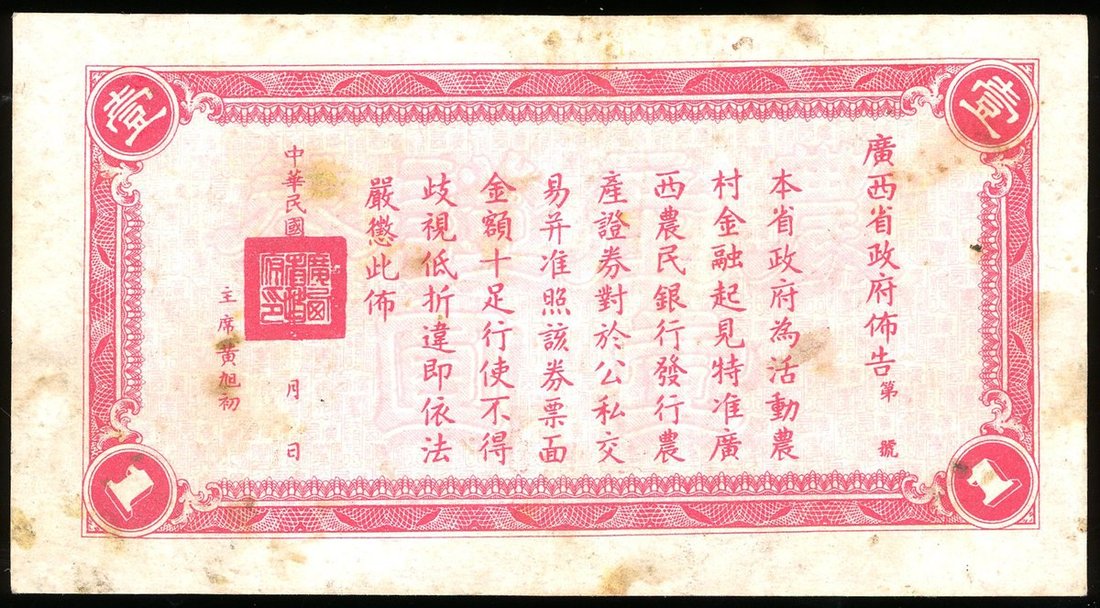 壹
壹
廣西省政府佈告 第 號
本省政府為活動農
村金融起見特准廣
西農民銀行發行農
產證券對於公私交
易并准照該券票面
金額十足行使不得
歧視低折違即依法
嚴懲此佈
中華民國 月 日
廣西省政府印
主席 黃旭初
1
1